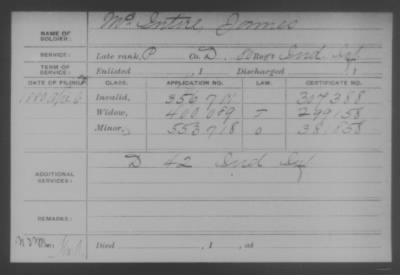 NAME OF SOLDIER: McIntire, James
SERVICE: Late rank, P Co. D, 80 Reg't Ind Inf
TERM OF SERVICE: Enlisted , 1 Discharged , 1
DATE OF FILING. CLASS. APPLICATION NO. LAW. CERTIFICATE NO.
1880 Invalid, 356 701 307 388
Widow, 400 089 299 158
Minor, 553 718 381 858
ADDITIONAL SERVICES: D 42 Ind Inf
REMARKS:
Died , 1 , at